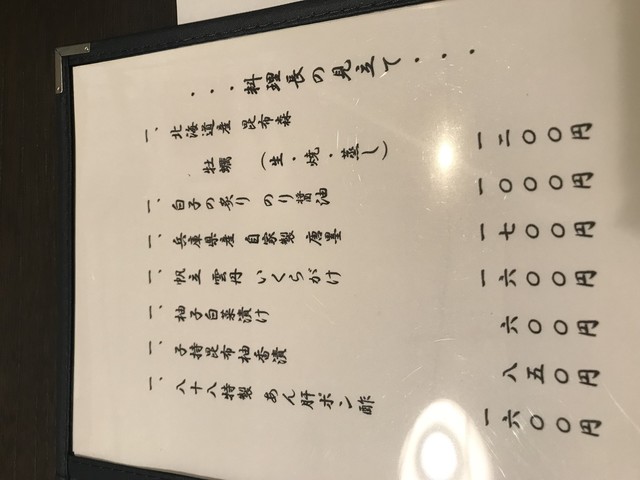 ・・・料理長の見立て・・・
一、北海道産 昆布森
牡蠣 (生・焼・蒸し) 一二〇〇円
一、白子の炙り のり醤油 一〇〇〇円
一、兵庫県産 自家製 唐墨 一七〇〇円
一、帆立 雲丹 いくらがけ 一六〇〇円
一、柚子白菜漬け 六〇〇円
一、子持昆布柚香漬 八五〇円
一、八十八特製 あん肝ポン酢 一六〇〇円